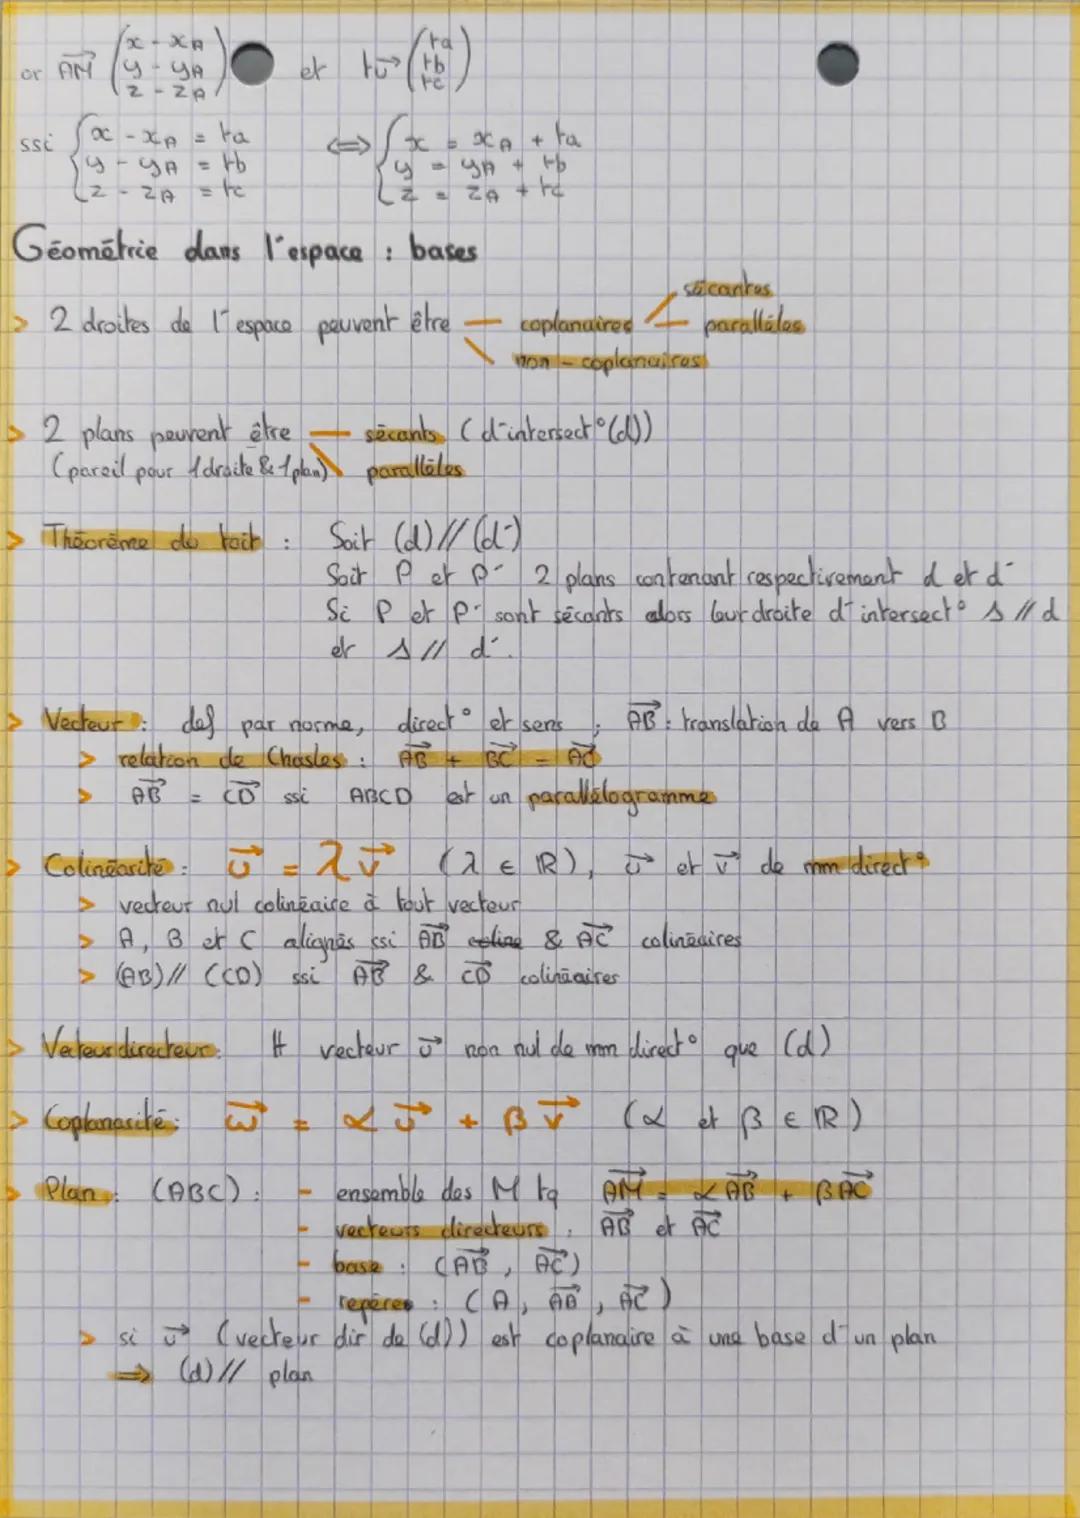 or AM→ (x - xA, y - yA, z - zA) et tu→ (ta, tb, tc)
ssi { x - xA = ta ⟺ { x = xA + ta
y - yA = tb y = yA + tb
z - zA = tc z = zA + tc
Géométrie dans l'espace : bases
sécantes
> 2 droites de l'espace peuvent être — coplanaires — parallèles
non - coplanaires
> 2 plans peuvent être — sécants (d'intersect° (d))
(pareil pour 1 droite & 1 plan) parallèles
> Théorème du toit : Soit (d) // (d')
Soit P et P' 2 plans contenant respectivement d et d'
Si P et P' sont sécants alors leur droite d'intersect° Δ // d
et Δ // d'.
> Vecteur : def par norme, direct° et sens ; AB→ : translation de A vers B
> relation de Chasles : AB→ + BC→ = AC→
> AB→ = CD→ ssi ABCD est un parallélogramme
> Colinéarité : u→ = λ v→ (λ ∈ ℝ), u→ et v→ de mm direct°
> vecteur nul colinéaire à tout vecteur
> A, B et C alignés ssi AB→ coline & AC→ colinéaires
> (AB) // (CD) ssi AB→ & CD→ colinéaires
> Vecteur directeur : tt vecteur u→ non nul de mm direct° que (d)
> Coplanarité : w→ = α u→ + β v→ (α et β ∈ ℝ)
> Plan : (ABC) : - ensemble des M tq AM→ = α AB→ + β AC→
- vecteurs directeurs : AB→ et AC→
- base : (AB→, AC→)
- repères : (A, AB→, AC→)
> si u→ (vecteur dir de (d)) est coplanaire à une base d'un plan
⟹ (d) // plan